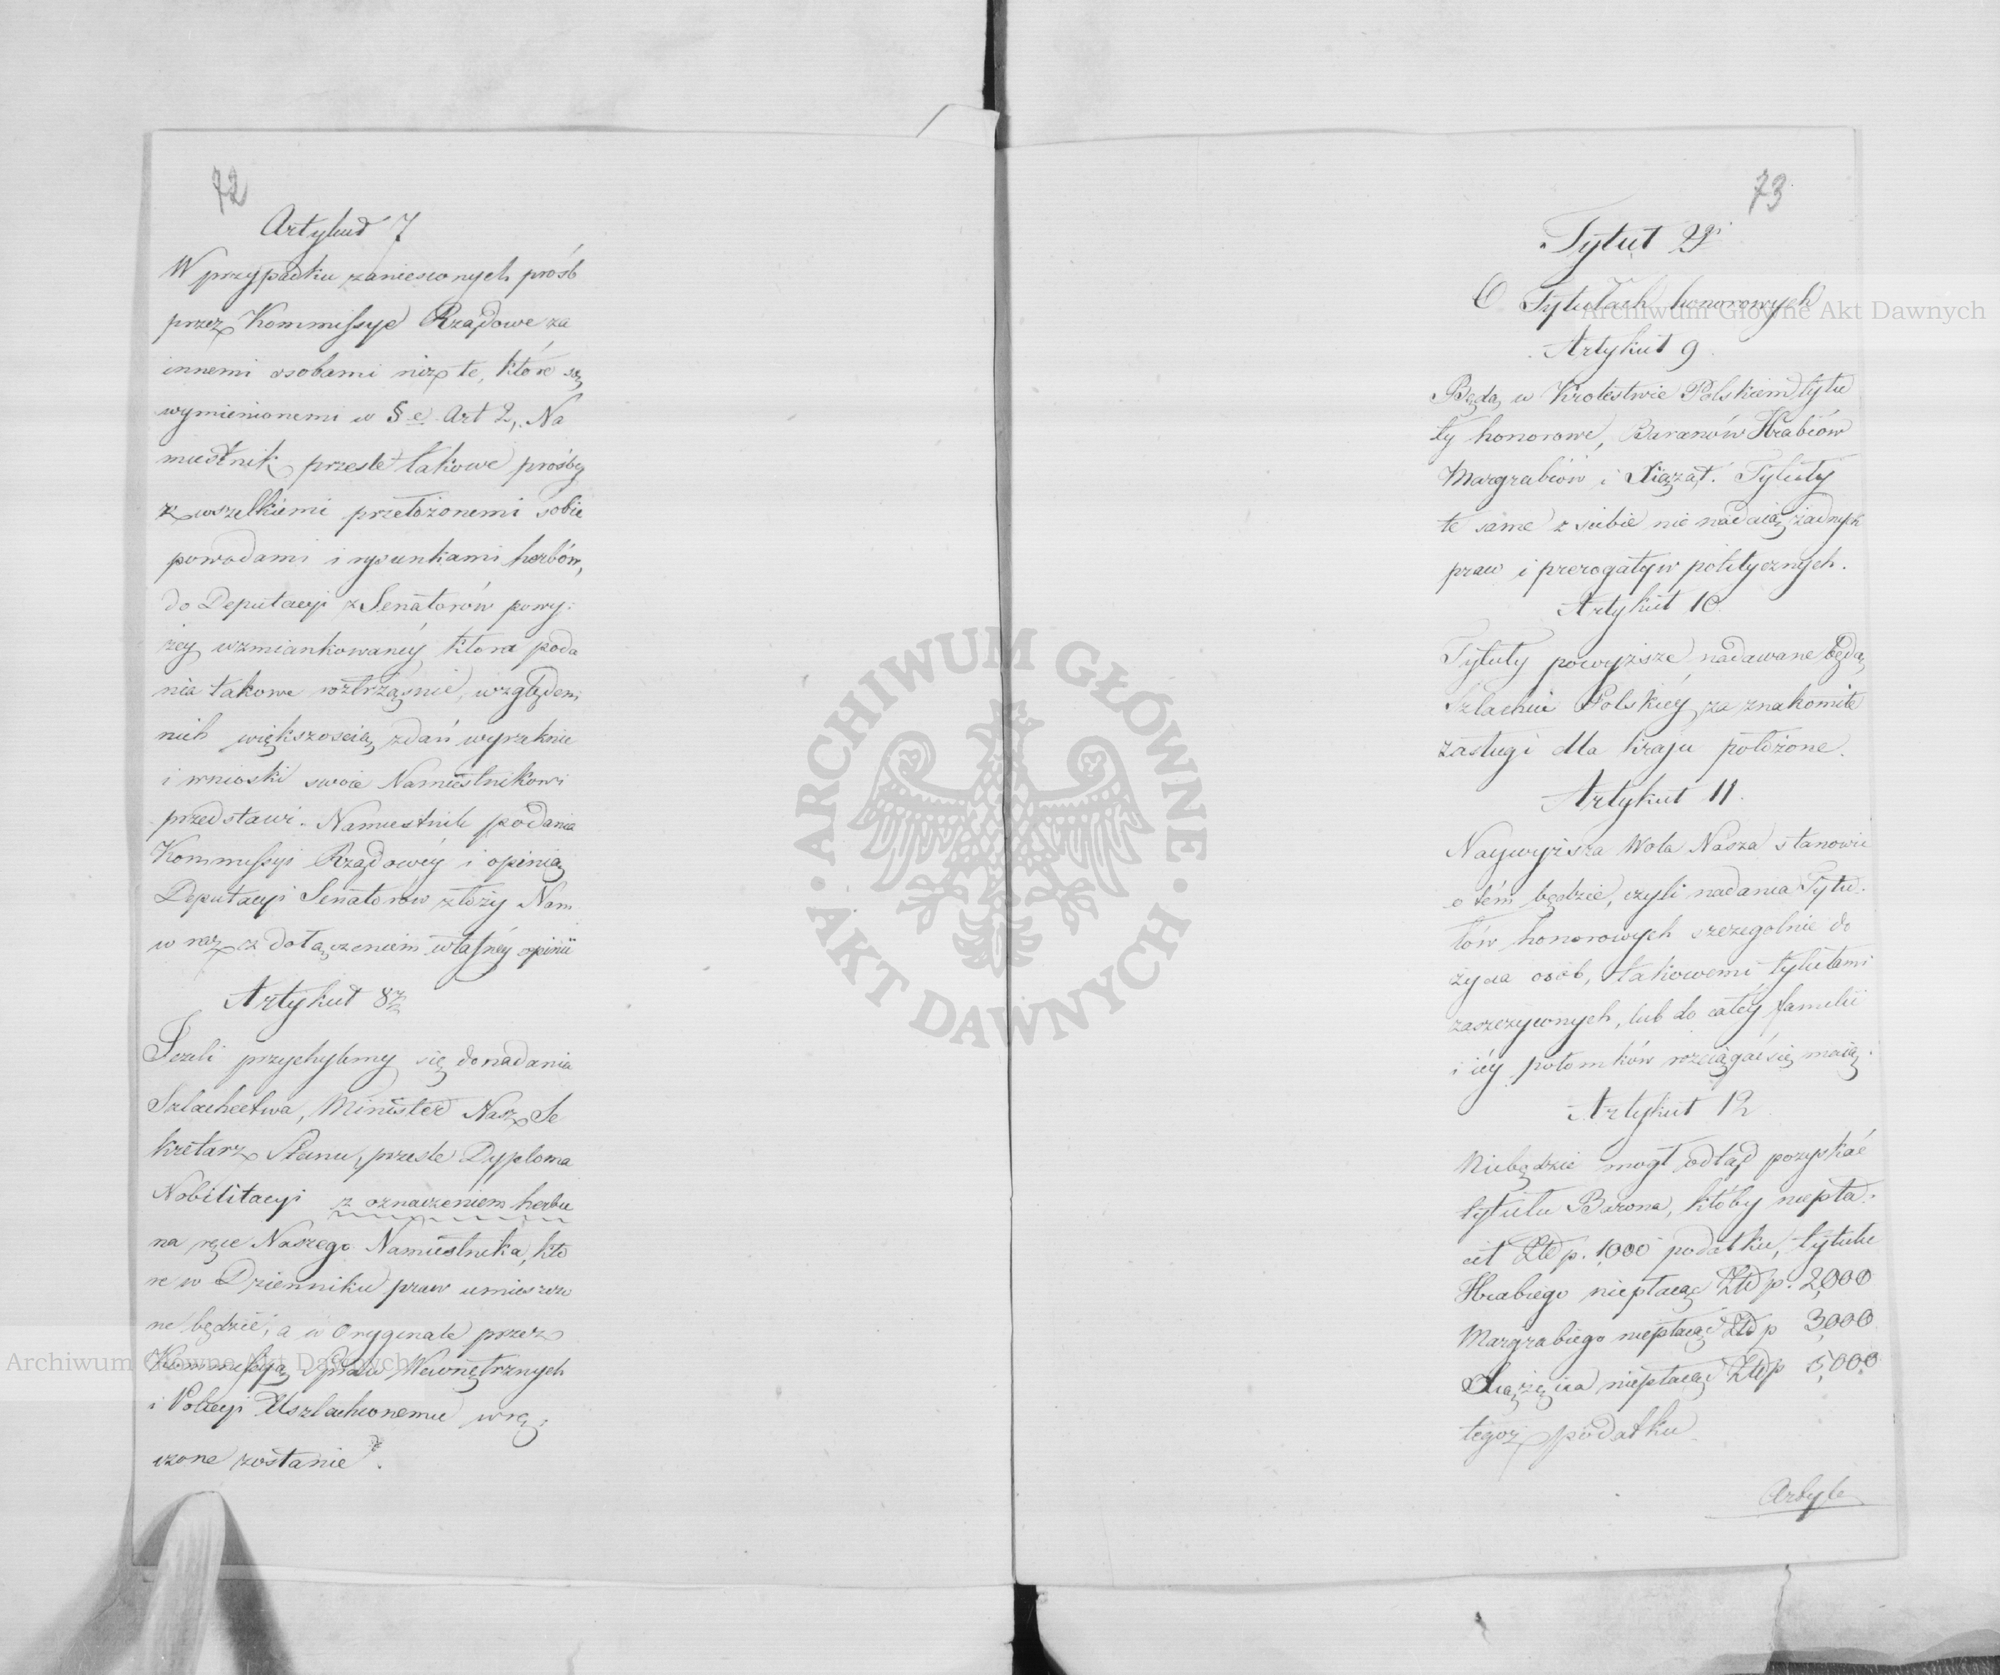 72
Artykuł 7
W przypadku zaniesionych próśb
przez Kommissye Rządowe za
innemi osobami niż te, które są
wymienionemi w § e Art 2, Na
miestnik prześle takowe prośby
z wszelkiemi przełożonemi sobie
powodami i rysunkami herbów,
do Deputacyi z Senatorów powy:
żey wzmiankowanéy która poda
nia takowe roztrząśnie, względem
nich większością zdań wyrzeknie
i wnioski swoie Namiestnikowi
przedstawi. Namiestnik podania
Kommissyi Rządowéy i opinią
Deputacyi Senatorów złoży Nam
w raz z dołączeniem własnéy opinii
Artykuł 8
Jeżeli przychylemy się do nadania
Szlachectwa, Minister Nasz Se
kretarz Stanu, prześle Dyploma
Nobilitacyi z oznaczeniem herbu
na ręce Naszego Namiestnika,ktо
re w Dzienniku praw umieszczo
ne będzie, a w Oryginale przez
Kommissyą Spraw Wewnętrznych
i Policyi Uszlachconemu wrę:
czone zostanie.
73
Tytuł 2gi
O Tytułach honorowych
Artykuł 9
Będą w Krolestwie Polskiem tytu
ły honorowe, Baronów Hrabiów
Margrabiów i Xiążąt. Tytuły
te same z siebie nie nadaią żadnych
praw i prerogatyw politycznych.
Artykuł 10
Tytuły powyższe nadawane będą
Szlachcie Polskiéy za znakomite
zasługi dla kraju położone.
Artykuł 11.
Naywyższa Wola Nasza stanowić
o tém będzie, czyli nadania Tytu:
łów honorowych szczegolnie do
życia osób, takowemi tytułami
zaszczyconych, lub do całéy familii
i iéy potomków rozciągać się maią.
Artykuł 12
Niebędzie mogł odtąd pozyskać
tytułu Barona, któby niepła:
cił Złł p. 1,000 podatku, tytułu
Hrabiego niepłacąc Złł p. 2,000
Margrabiego niepłacąc Złł p 3,000
Xiążęcia niepłacąc Złł p 5,000
tegoż podatku
Artyk
Archiwum Główne Akt Dawnych
Archiwum Główne Akt Dawnych
ARCHIWUM GŁÓWNE
AKT DAWNYCH